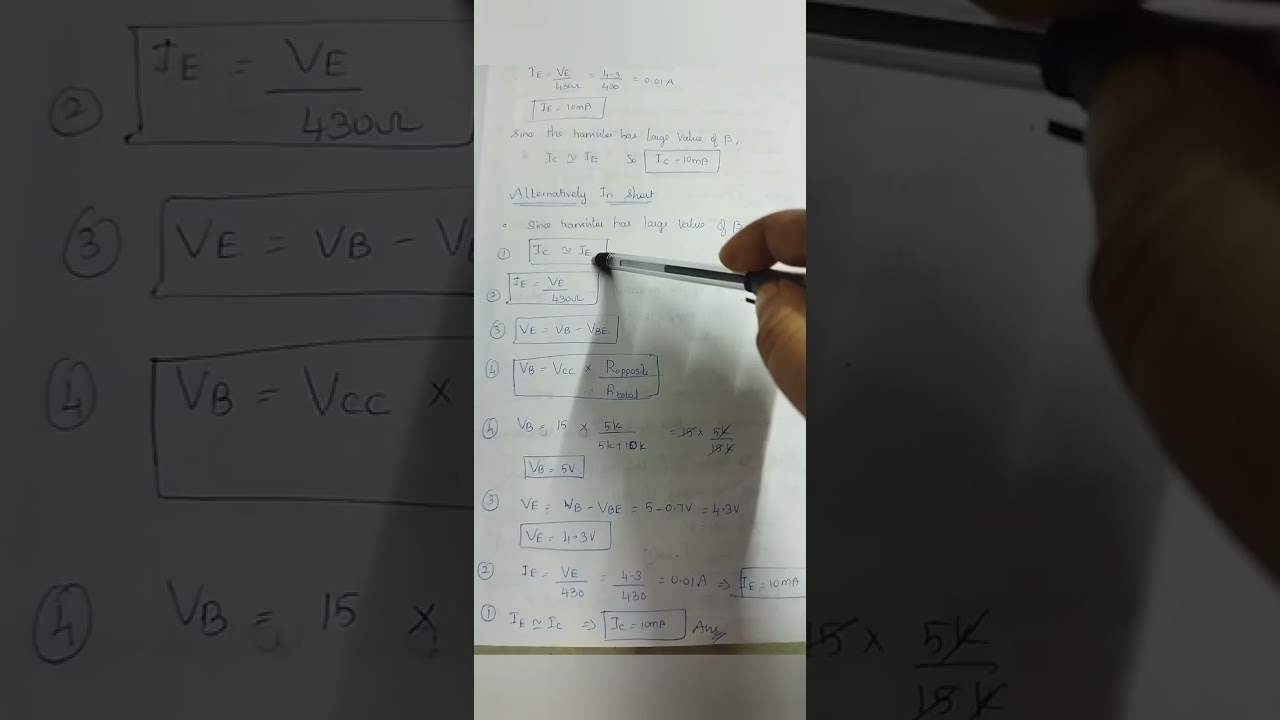 IE = VE/430Ω = 4.3/430 = 0.01A
IE = 10mA
Since the transister has large value of β,
IC ≃ IE So IC = 10mA
Alternatively In short
• Since transister has large value of β
① IC ≃ IE
② IE = VE/430Ω
③ VE = VB - VBE
④ VB = VCC × Ropposite/Rtotal
④ VB = 15 × 5k/5k+10k = 15 × 5k/15k
VB = 5V
③ VE = VB - VBE = 5-0.7V = 4.3V
VE = 4.3V
② IE = VE/430 = 4.3/430 = 0.01A ⇒ IE = 10mA
① IE ≃ IC ⇒ IC = 10mA Ans